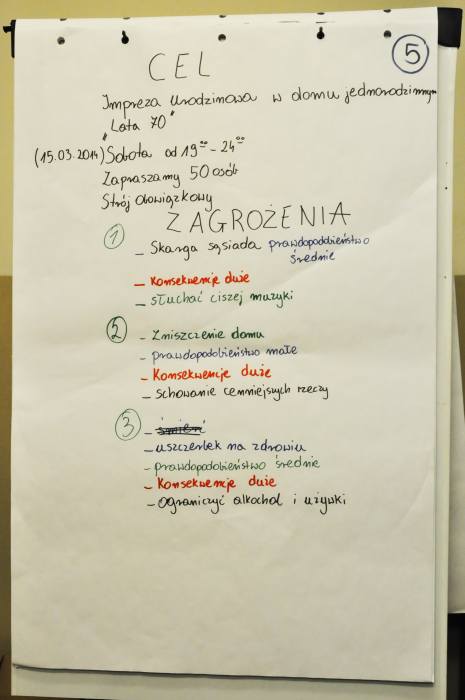 5
CEL
Impreza urodzinowa w domu jednorodzinnym
"Lata 70"
(15.03.2014) Sobota od 19⁰⁰ - 24⁰⁰
Zapraszamy 50 osób
Strój obowiązkowy
ZAGROŻENIA
1
- Skarga sąsiada prawdopodobieństwo
średnie
- Konsekwencje duże
- słuchać ciszej muzyki
2 - Zniszczenie domu
- prawdopodobieństwo małe
- Konsekwencje duże
- schowanie cenniejszych rzeczy
3 - śmierć
- uszczerbek na zdrowiu
- prawdopodobieństwo średnie
- Konsekwencje duże
- Ograniczyć alkohol i używki